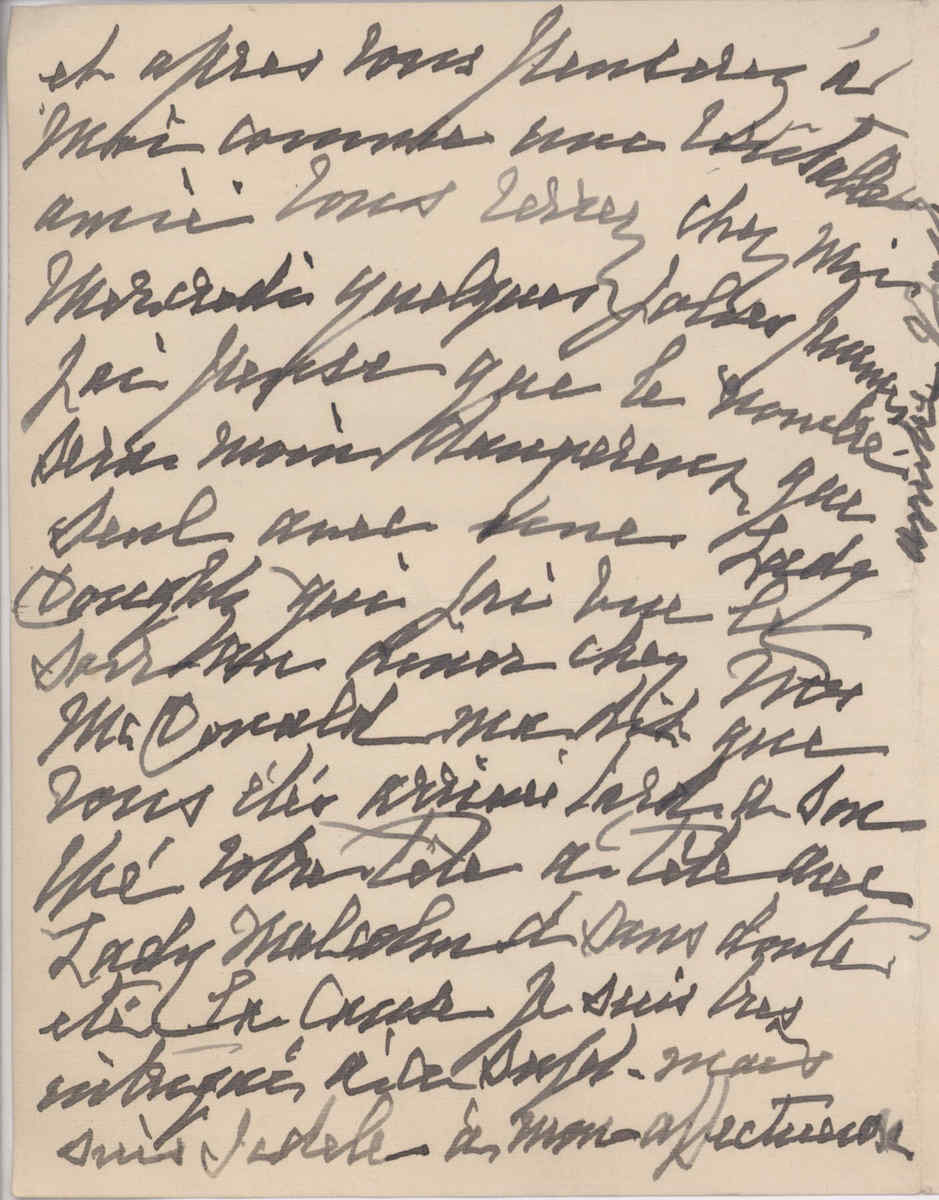 et apres vous penserez à
Moi comme une veritable
amie vous verrez chez Moi
Mercredi quelques jolies femmes
J'ai pensé que le nombre
sera moin dangereux que
seul avec une Lady
qui j'ai vue le
soir diner chez Mrs
McDonald ma dit que
vous étés arrivé tard a son
thé votre tête a tête avec
Lady Malcolm à sans doute
eté la cause Je suis tres
intrigué a ce sujet. mais
suis fidele à mon affectueuse